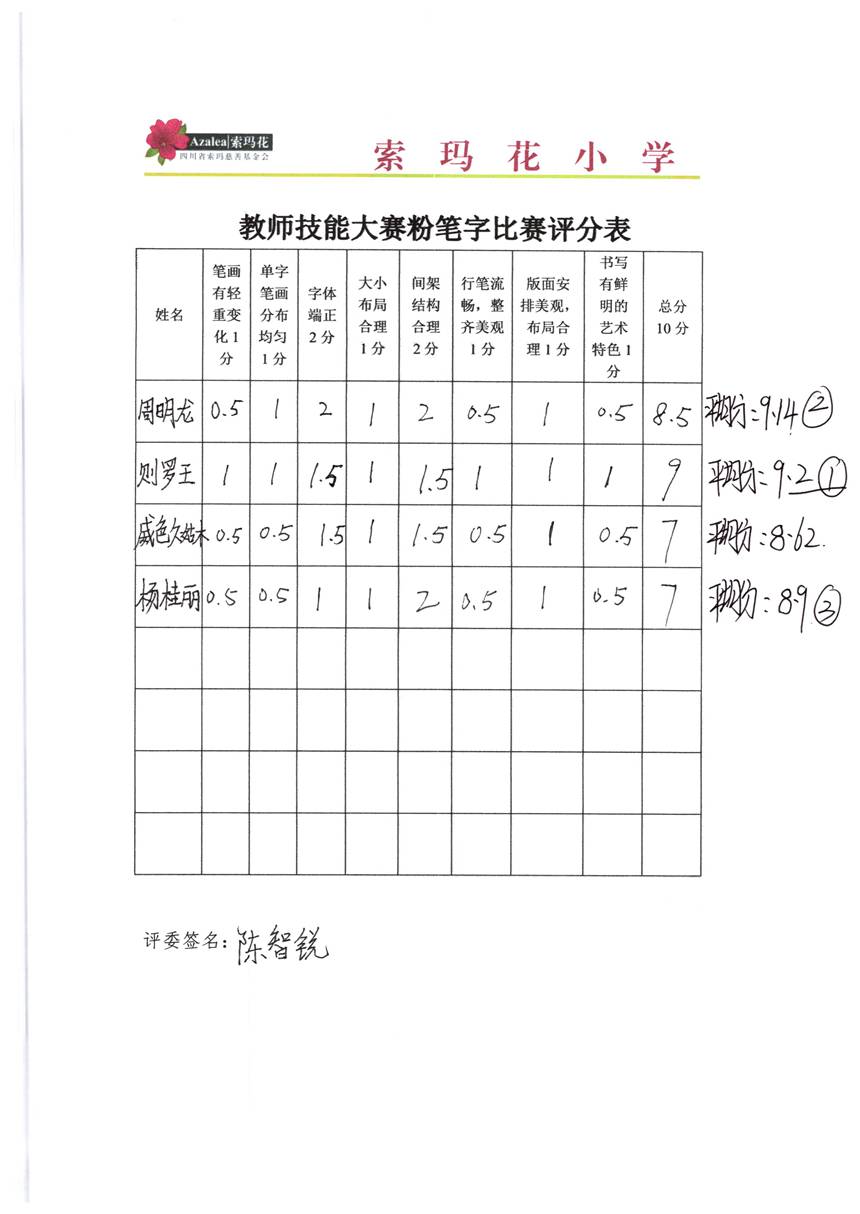 Azalea 索玛花
四川省索玛慈善基金会
索玛花小学
教师技能大赛粉笔字比赛评分表
姓名 笔画有轻重变化1分 单字笔画分布均匀1分 字体端正2分 大小布局合理1分 间架结构合理2分 行笔流畅，整齐美观1分 版面安排美观，布局合理1分 书写有鲜明的艺术特色1分 总分10分
周明龙 0.5 1 2 1 2 0.5 1 0.5 8.5 平均分:9.14 ②
则罗王 1 1 1.5 1 1.5 1 1 1 9 平均分:9.2 ①
0.5 0.5 1.5 1 1.5 0.5 1 0.5 7 平均分:8.62.
杨桂丽 0.5 0.5 1 1 2 0.5 1 0.5 7 平均分:8.9 ③
评委签名: 陈智锐